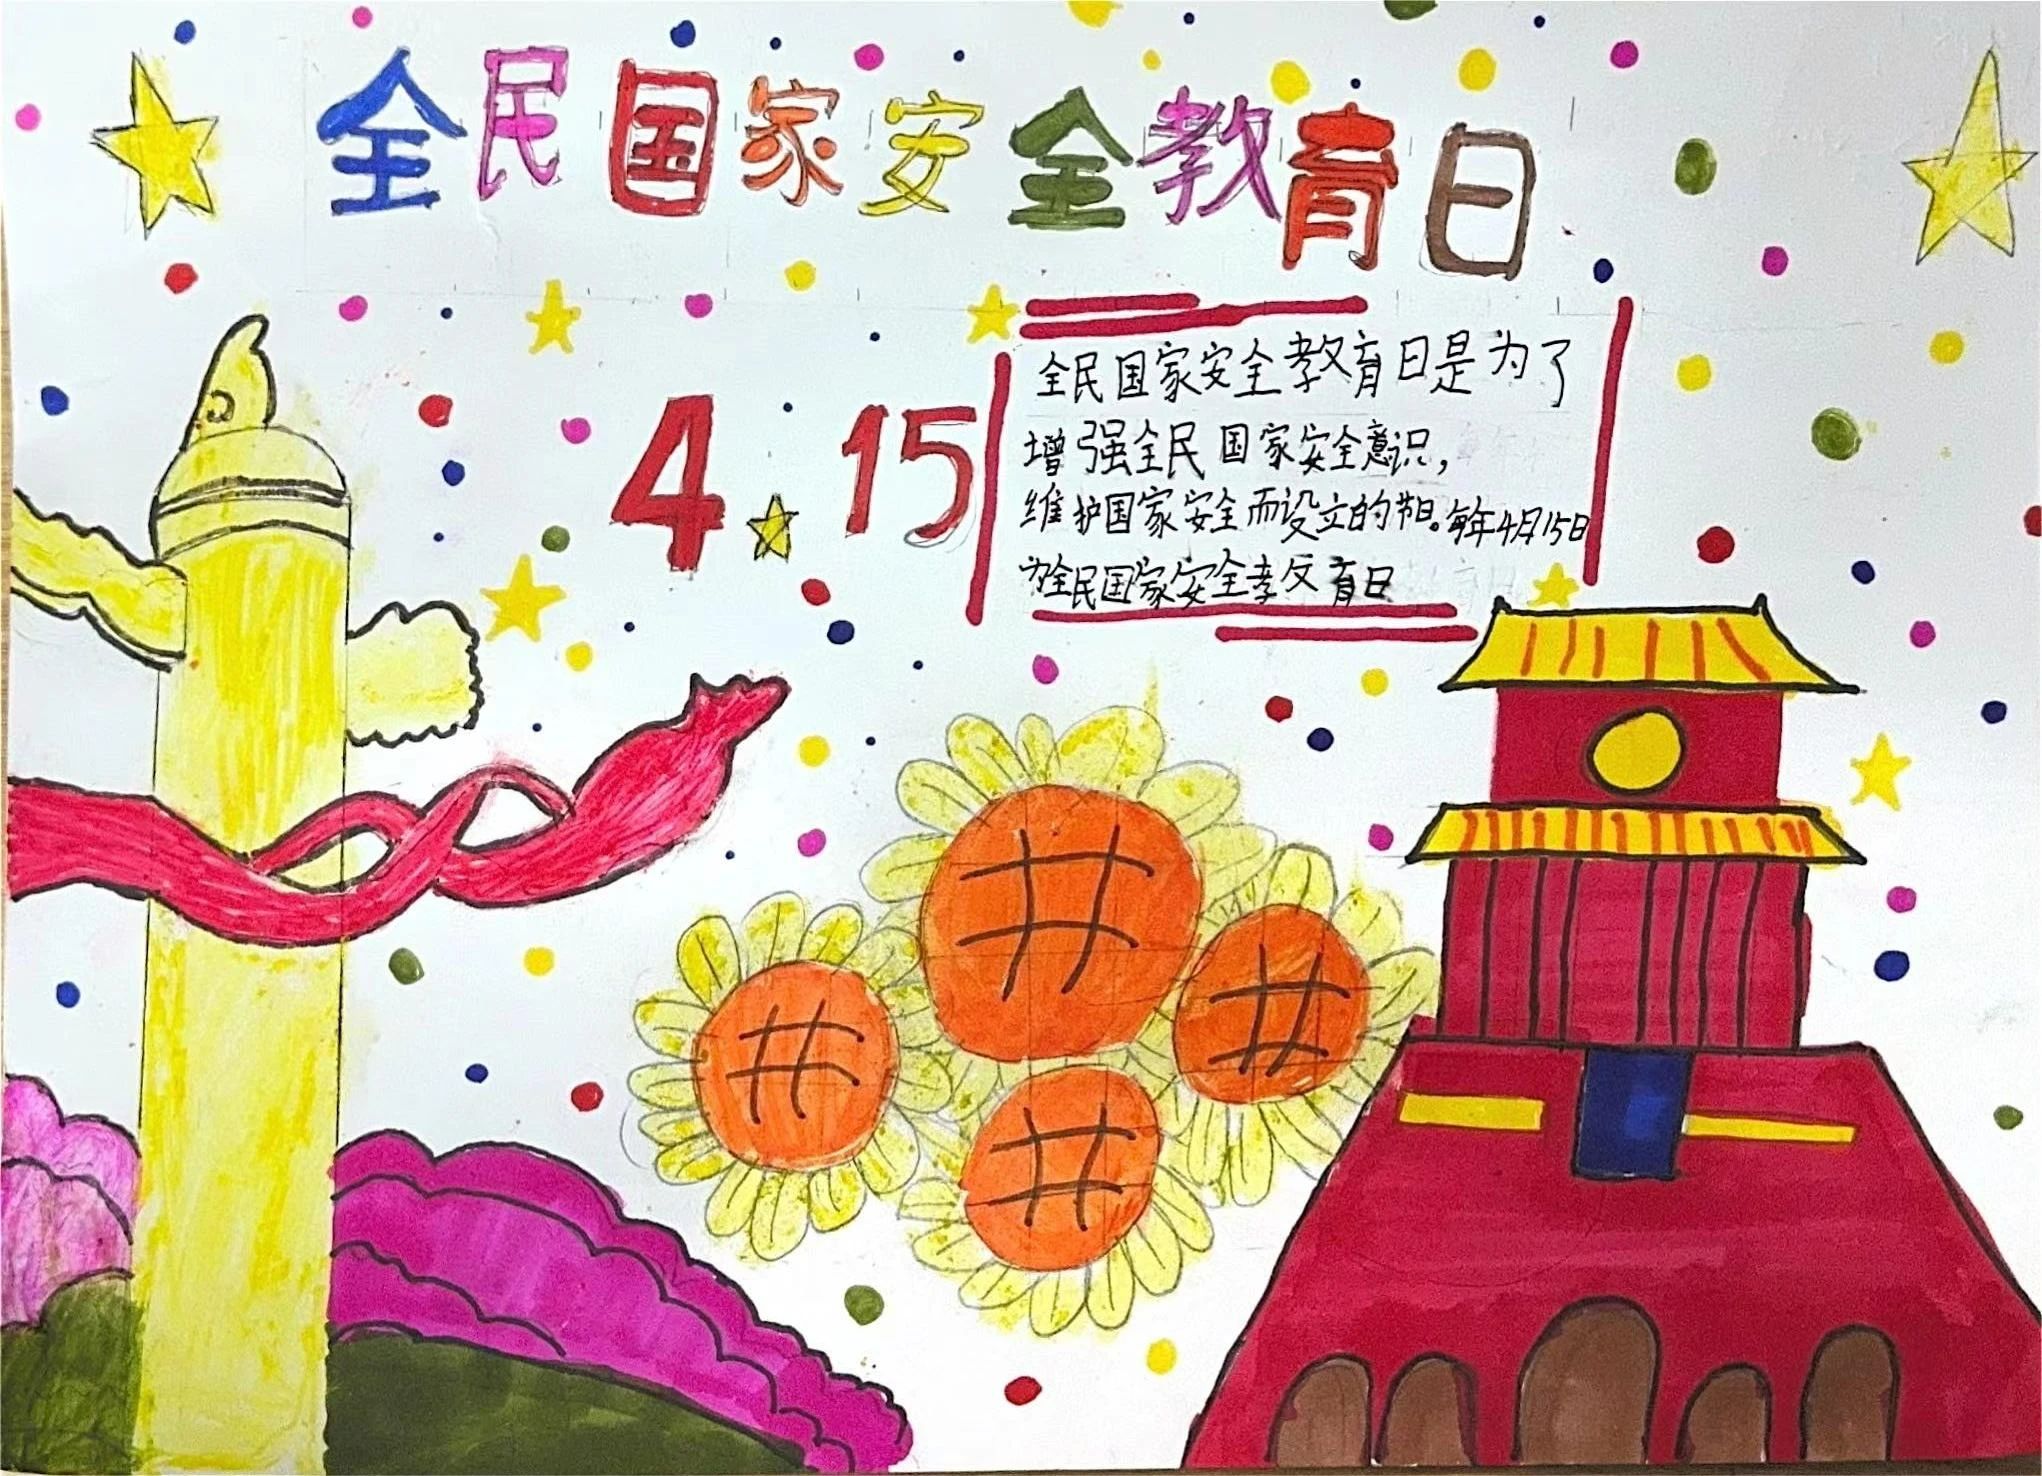 全民国家安全教育日
4.15
全民国家安全教育日是为了
增强全民国家安全意识，
维护国家安全而设立的节日。每年4月15日
为全民国家安全教育日